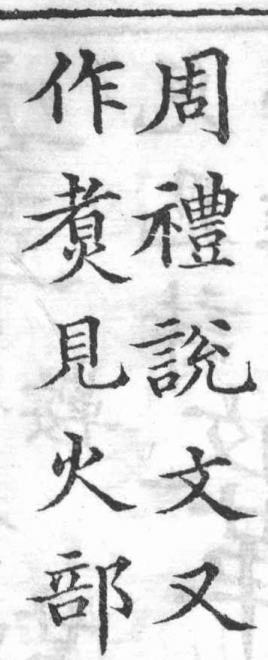 周禮說文又
作煑見火部